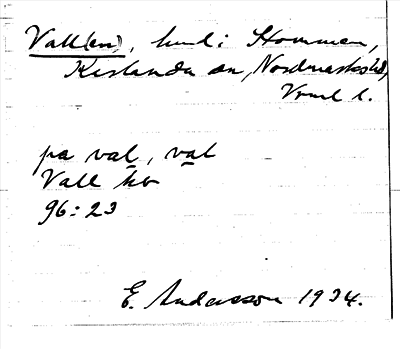 Vall(en), hmd i Hommen,
Karlanda sn, Nordmarks hd,
Vrml l.
på val, val
Vall hb
96:23
E. Andersson 1934.